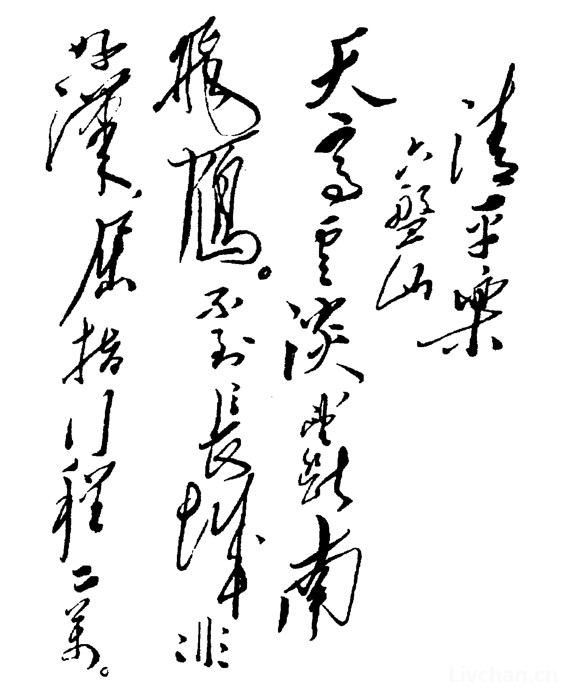 清平樂
六盤山
天高雲淡望斷南
飛鴈。不到長城非
好漢、屈指行程二萬。
Livchan.cn